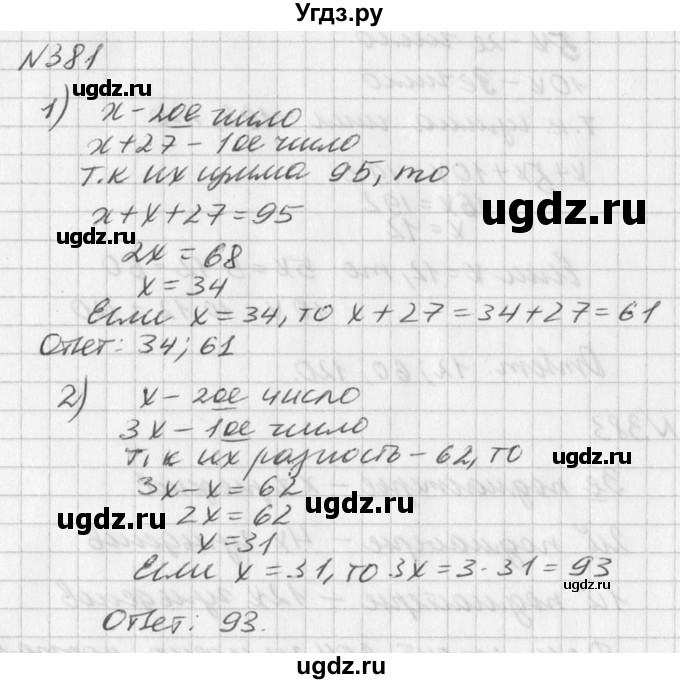 Угдз.ру
N381
1) x - 2ое число
x+27 - 1ое число
т.к их сумма 95, то
x+x+27=95
2x=68
x=34
Если x=34, то x+27=34+27=61
Ответ: 34; 61
2) x - 2ое число
3x - 1ое число
т.к их разность - 62, то
3x-x=62
2x=62
x=31
Если x=31, то 3x=3·31=93
Ответ: 93.
ugdz.ru
ugdz.ru
ugdz.ru
ugdz.ru
ugdz.ru
ugdz.ru
ugdz.ru
ugdz.ru